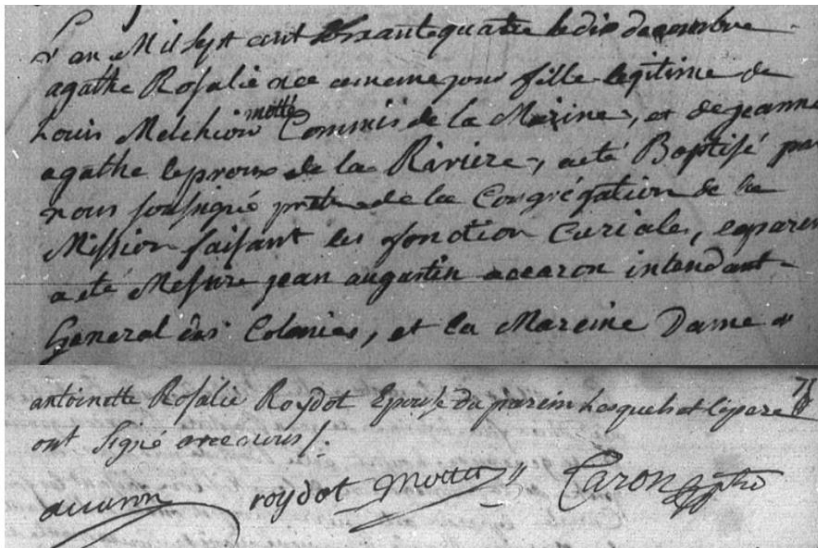 L'an Mil sept cent soixante quatre le dix decembre
agathe Rosalie née ce meme jour fille legitime de
Louis Melchior motté Commis de la Marine, et de jeanne
agathe leproux de la Riviere, a eté Baptisé par
nous soussigné prtre de la Congrégation de la
Mission faisant les fonction Curiales, le parein
a eté Messire jean augustin accaron intendant
General des Colonies, et la Mareine Dame
antoinette Rosalie Roydot Epouse du parein Lesquels et le pere
ont signé avec nous /.
accaron roydot Motté Caron ptre